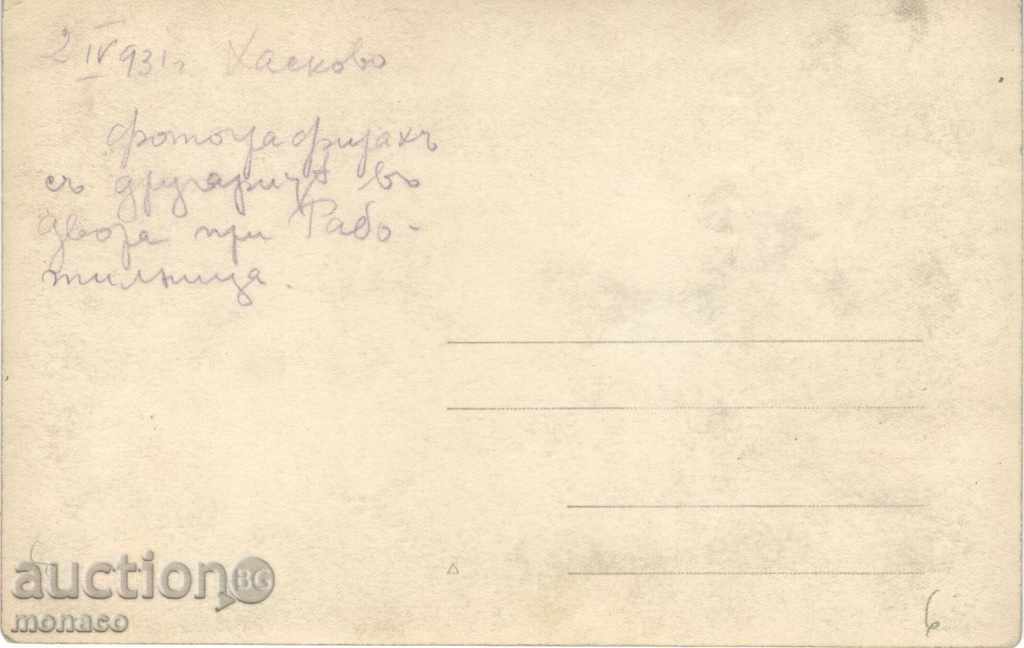 2 IV 931 г. Хасково
фотографирахъ
съ другарита въ
двора при Рабо-
тилница.
auction BG
monaco
6